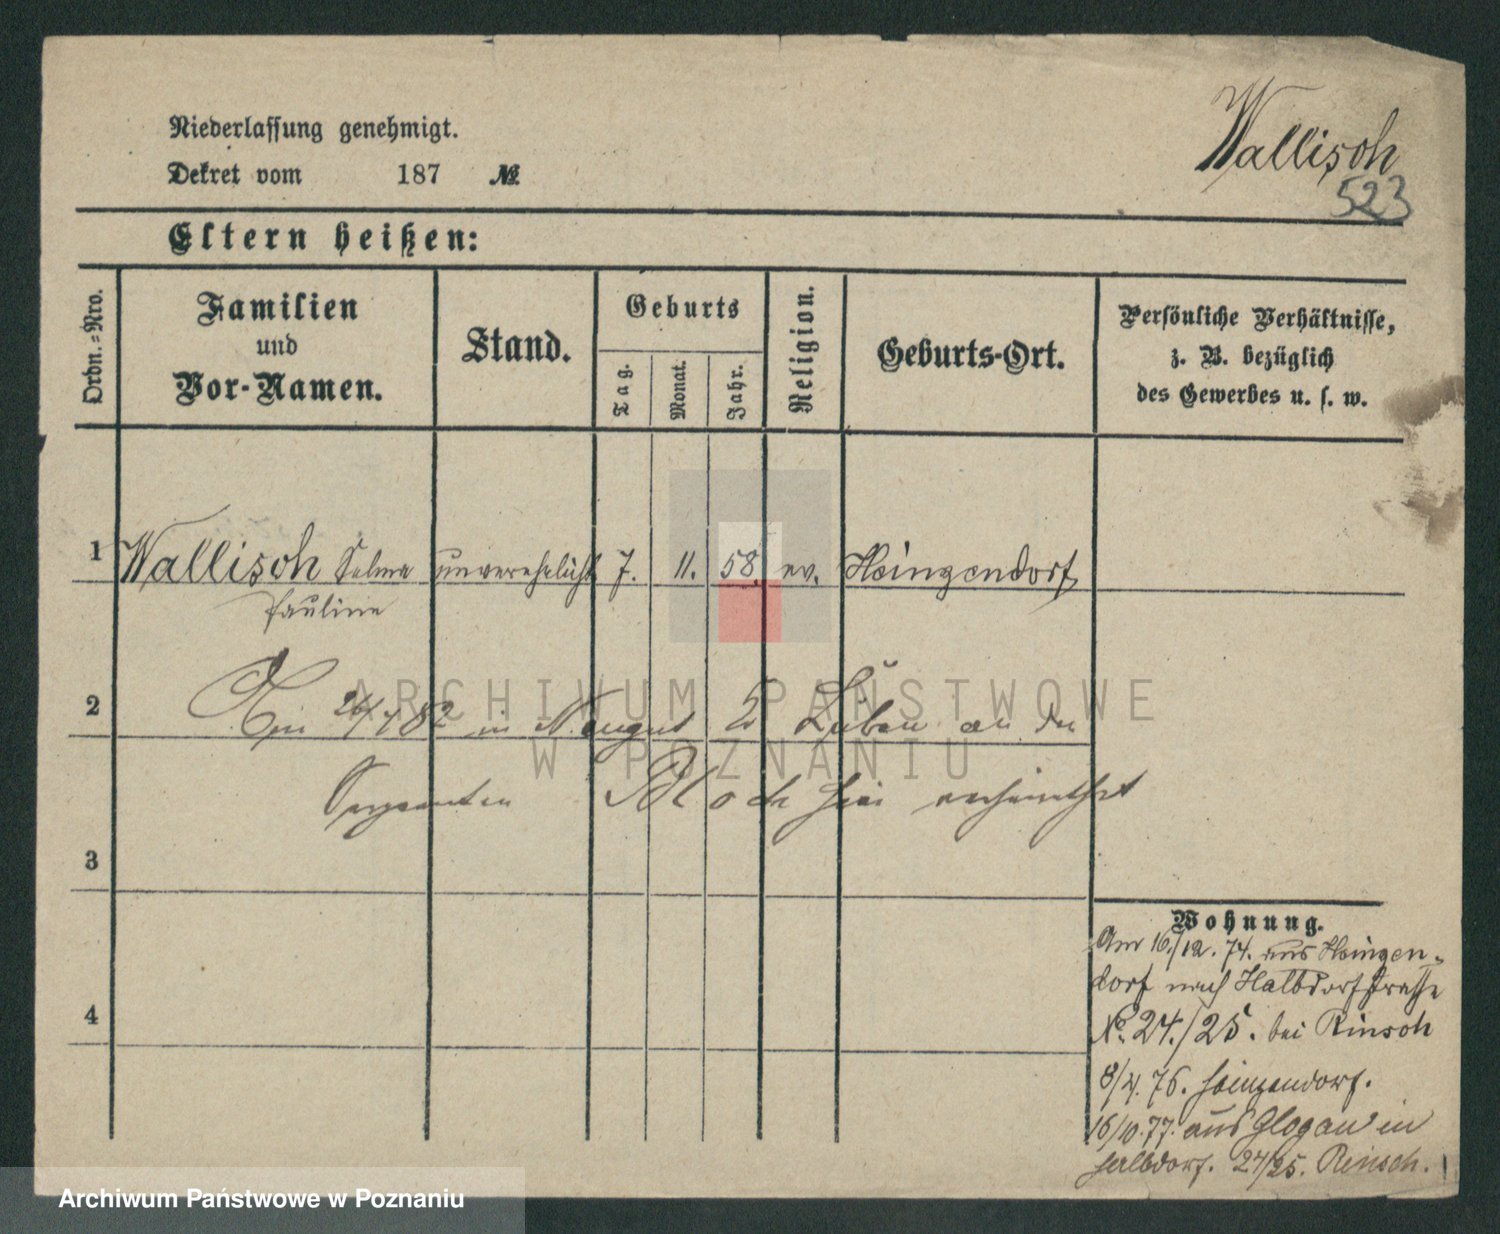 Wallisch
523
Niederlassung genehmigt.
Dekret vom 187 №
Eltern heißen:
Ordn.-Nro.
Familien
und
Vor-Namen.
Stand.
Geburts
Tag.
Monat.
Jahr.
Religion.
Geburts-Ort.
Persönliche Verhältnisse,
z. B. bezüglich
des Gewerbes u. s. w.
1 Wallisch Selma unverehelicht 7. 11. 58. ev. Heinzendorf
Pauline
2 Am 24/4 82 in Lüben an den
Sergeanten hier verheirathet
3
4
Wohnung.
Am 16./12. 74. aus Heinzen-
dorf nach Halbdorfstrasse
No. 24./25. bei Rinsch
8/4. 76. Heinzendorf.
16/10. 77. aus Glogau in
Halbdorf. 24/25. Rinsch.
ARCHIWUM PAŃSTWOWE
W POZNANIU
Archiwum Państwowe w Poznaniu